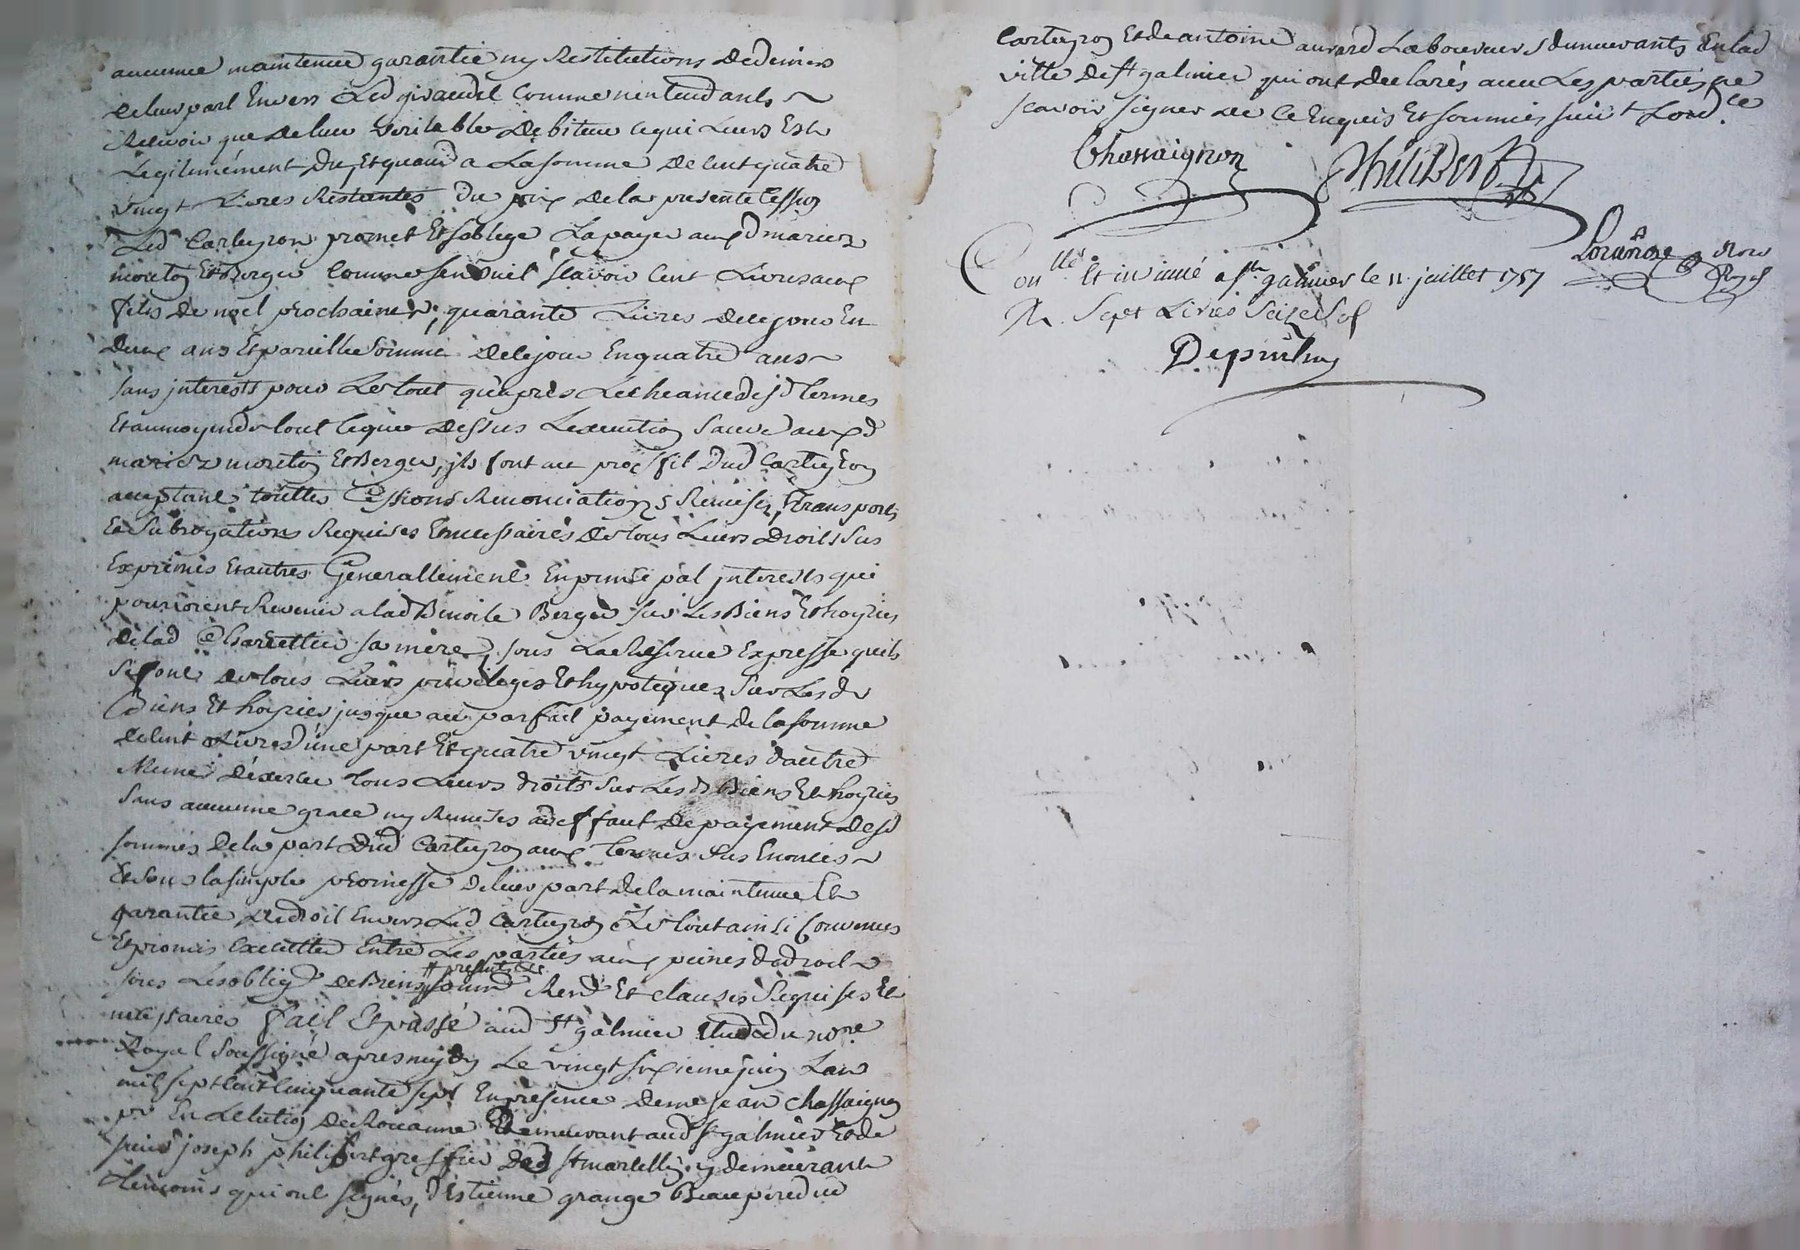 aucunne maintenue garantie ny Restitutions de deniers
de leur part Envers Led giraudet Comme nentendants
Recevoir que de leur veritable debiteur ce qui Leurs Est
Legitimement du, Et quand a La somme de Cent quatre
vingt Livres Restantes du prix de la presente Cession
Led Carteyron promet Et soblige La payer auxd mariez
moreton Et Berger Comme sensuit scavoir Cent Livres aux
fetes de noel prochaines, quarante Livres de ce jour En
deux ans Et pareillle somme de ce jour En quatre ans
sans jnterests pour Le tout qu'apres Lecheance desd termes
Et au moyen de tout ce que dessus Lexecution sauve auxd
mariez moreton Et Berger, jls font au proffit dud Carteyron
acceptant touttes Cessions Renonciations Remises, transports
Et subrogations Requises Et necessaires de tous Leurs droits sus
Exprimés Et autres Generallement En principal jnterests qui
pourroient Revenir a lad Benoite Berger sur Les Biens Et hoyries
de lad sa mere, sous La Reserve Expresse quils
se font de tous Leurs privileges Et hypoteques sur Lesds
Biens Et hoyries jusque au parfait payement de la somme
de Cent Livres d'une part Et quatre vingt Livres dautre
Meme dexercer tous Leurs droits sur Lesd Biens Et hoyries
sans aucunne grace ny Remises a deffaut de payement desd
sommes de la part dud Carteyron aux termes sus Enoncés
Et sous la simple promesse de leur part de la maintenue Et
garantie de droit Envers Led Carteyron Le tout ainsi Convenus
Et promis Executter Entre Les parties aux peines de droit
sous Les obligs de Biens presents soumd Rend Et clauses Requises Et
necessaires fait Et passé aud St galmier Etude du nore
Royal soussigné apres midy Le vingt sixieme juin Lan
mil sept Cent Cinquante sept En presence de me jean chassaignon
pr En Lelection de Roanne demeurant aud St galmier Et de
sieur joseph philibert greffier de St marcellin y demeurant
temoins qui ont signés, d'Estienne grange Beaupere dud
Carteyron Et de antoine aurard Laboureurs demeurants En lad
ville de St galmier qui ont declarés avec Les parties ne
scavoir signer de ce Enquis Et sommés suivt Lordce
Chassaignon Philibert
Lorange nore Royal
Conllé Et insinué a St galmier le 11 juillet 1757
R. Sept Livres Seize Sols
Depriulhy